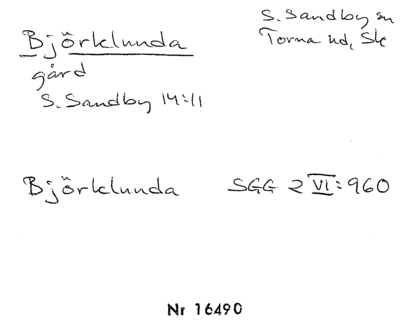 Björklunda
gård
S. Sandby 14:11
S. Sandby sn
Torna hd, Sk
Björklunda SGG 2 VI: 960
Nr 16490